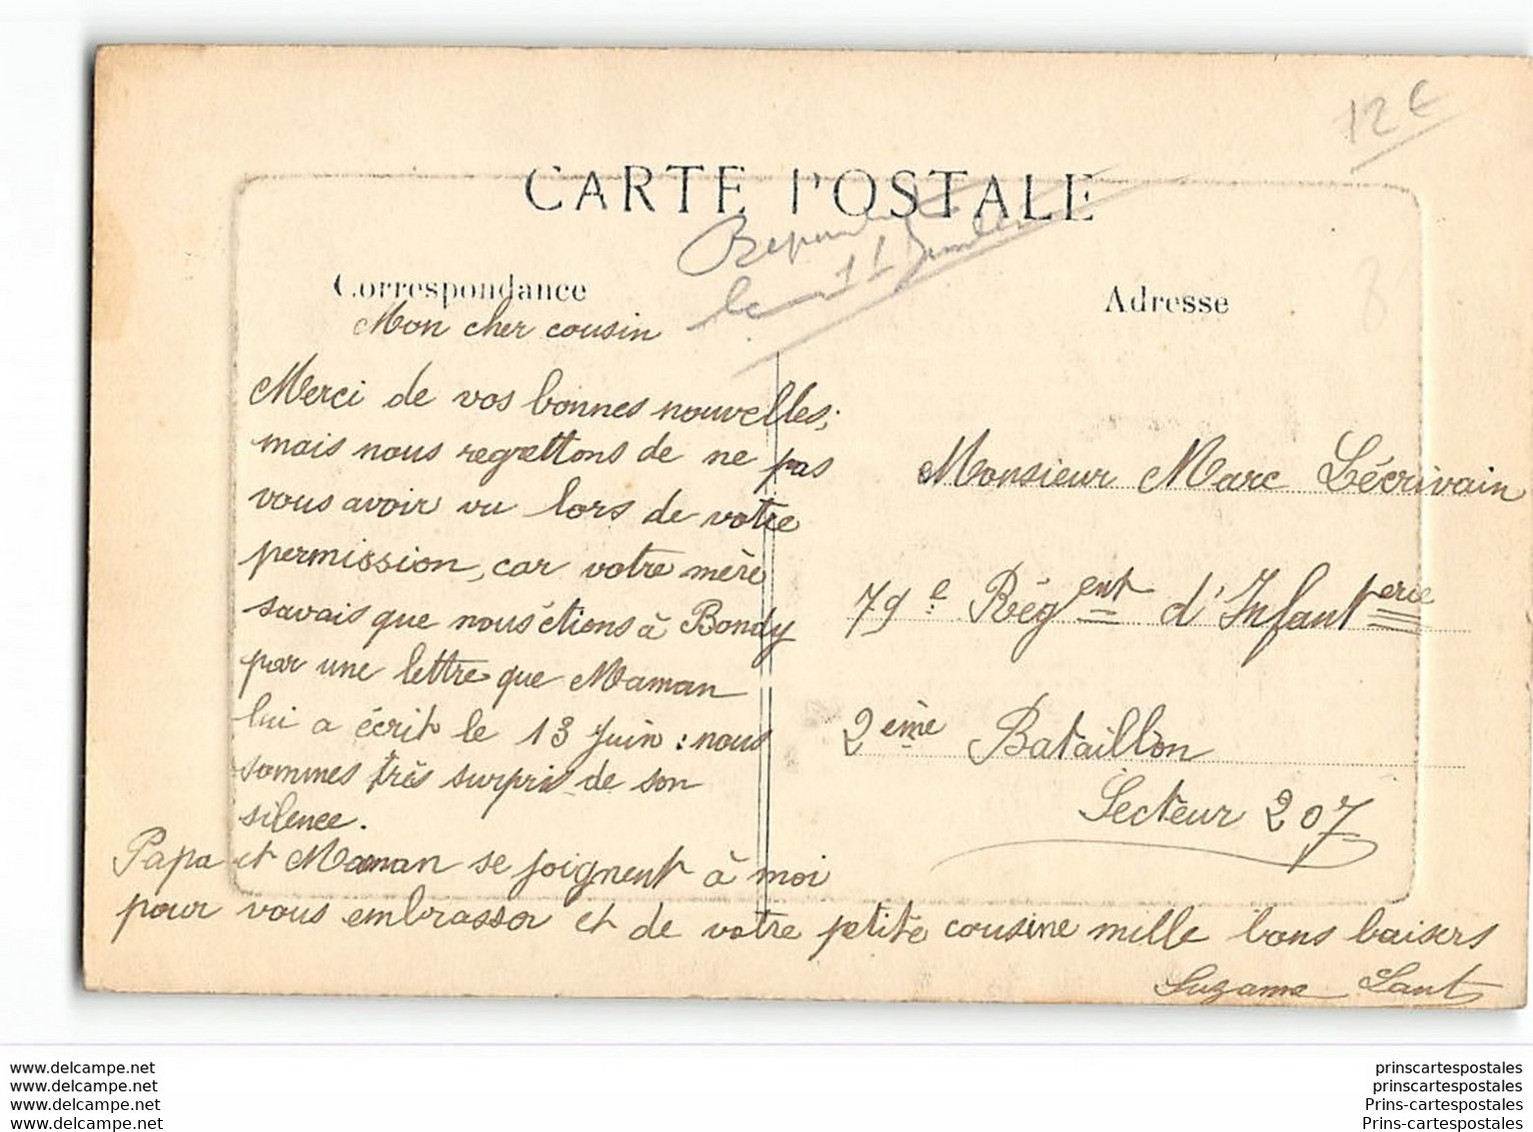 12 €
CARTE POSTALE
le 11
Correspondance
Adresse
Mon cher cousin
Merci de vos bonnes nouvelles;
mais nous regrettons de ne pas
vous avoir vu lors de votre
permission, car votre mère
savais que nous étions à Bondy
par une lettre que Maman
lui a écrit le 13 Juin : nous
sommes très surpris de son
silence.
Papa et Maman se joignent à moi
pour vous embrasser et de votre petite cousine mille bons baisers
Suzanne
Monsieur Marc Lécrivain
79e Régent d'Infanterie
2ème Bataillon
Secteur 207
www.delcampe.net
www.delcampe.net
www.delcampe.net
www.delcampe.net
prinscartespostales
prinscartespostales
Prins-cartespostales
Prins-cartespostales